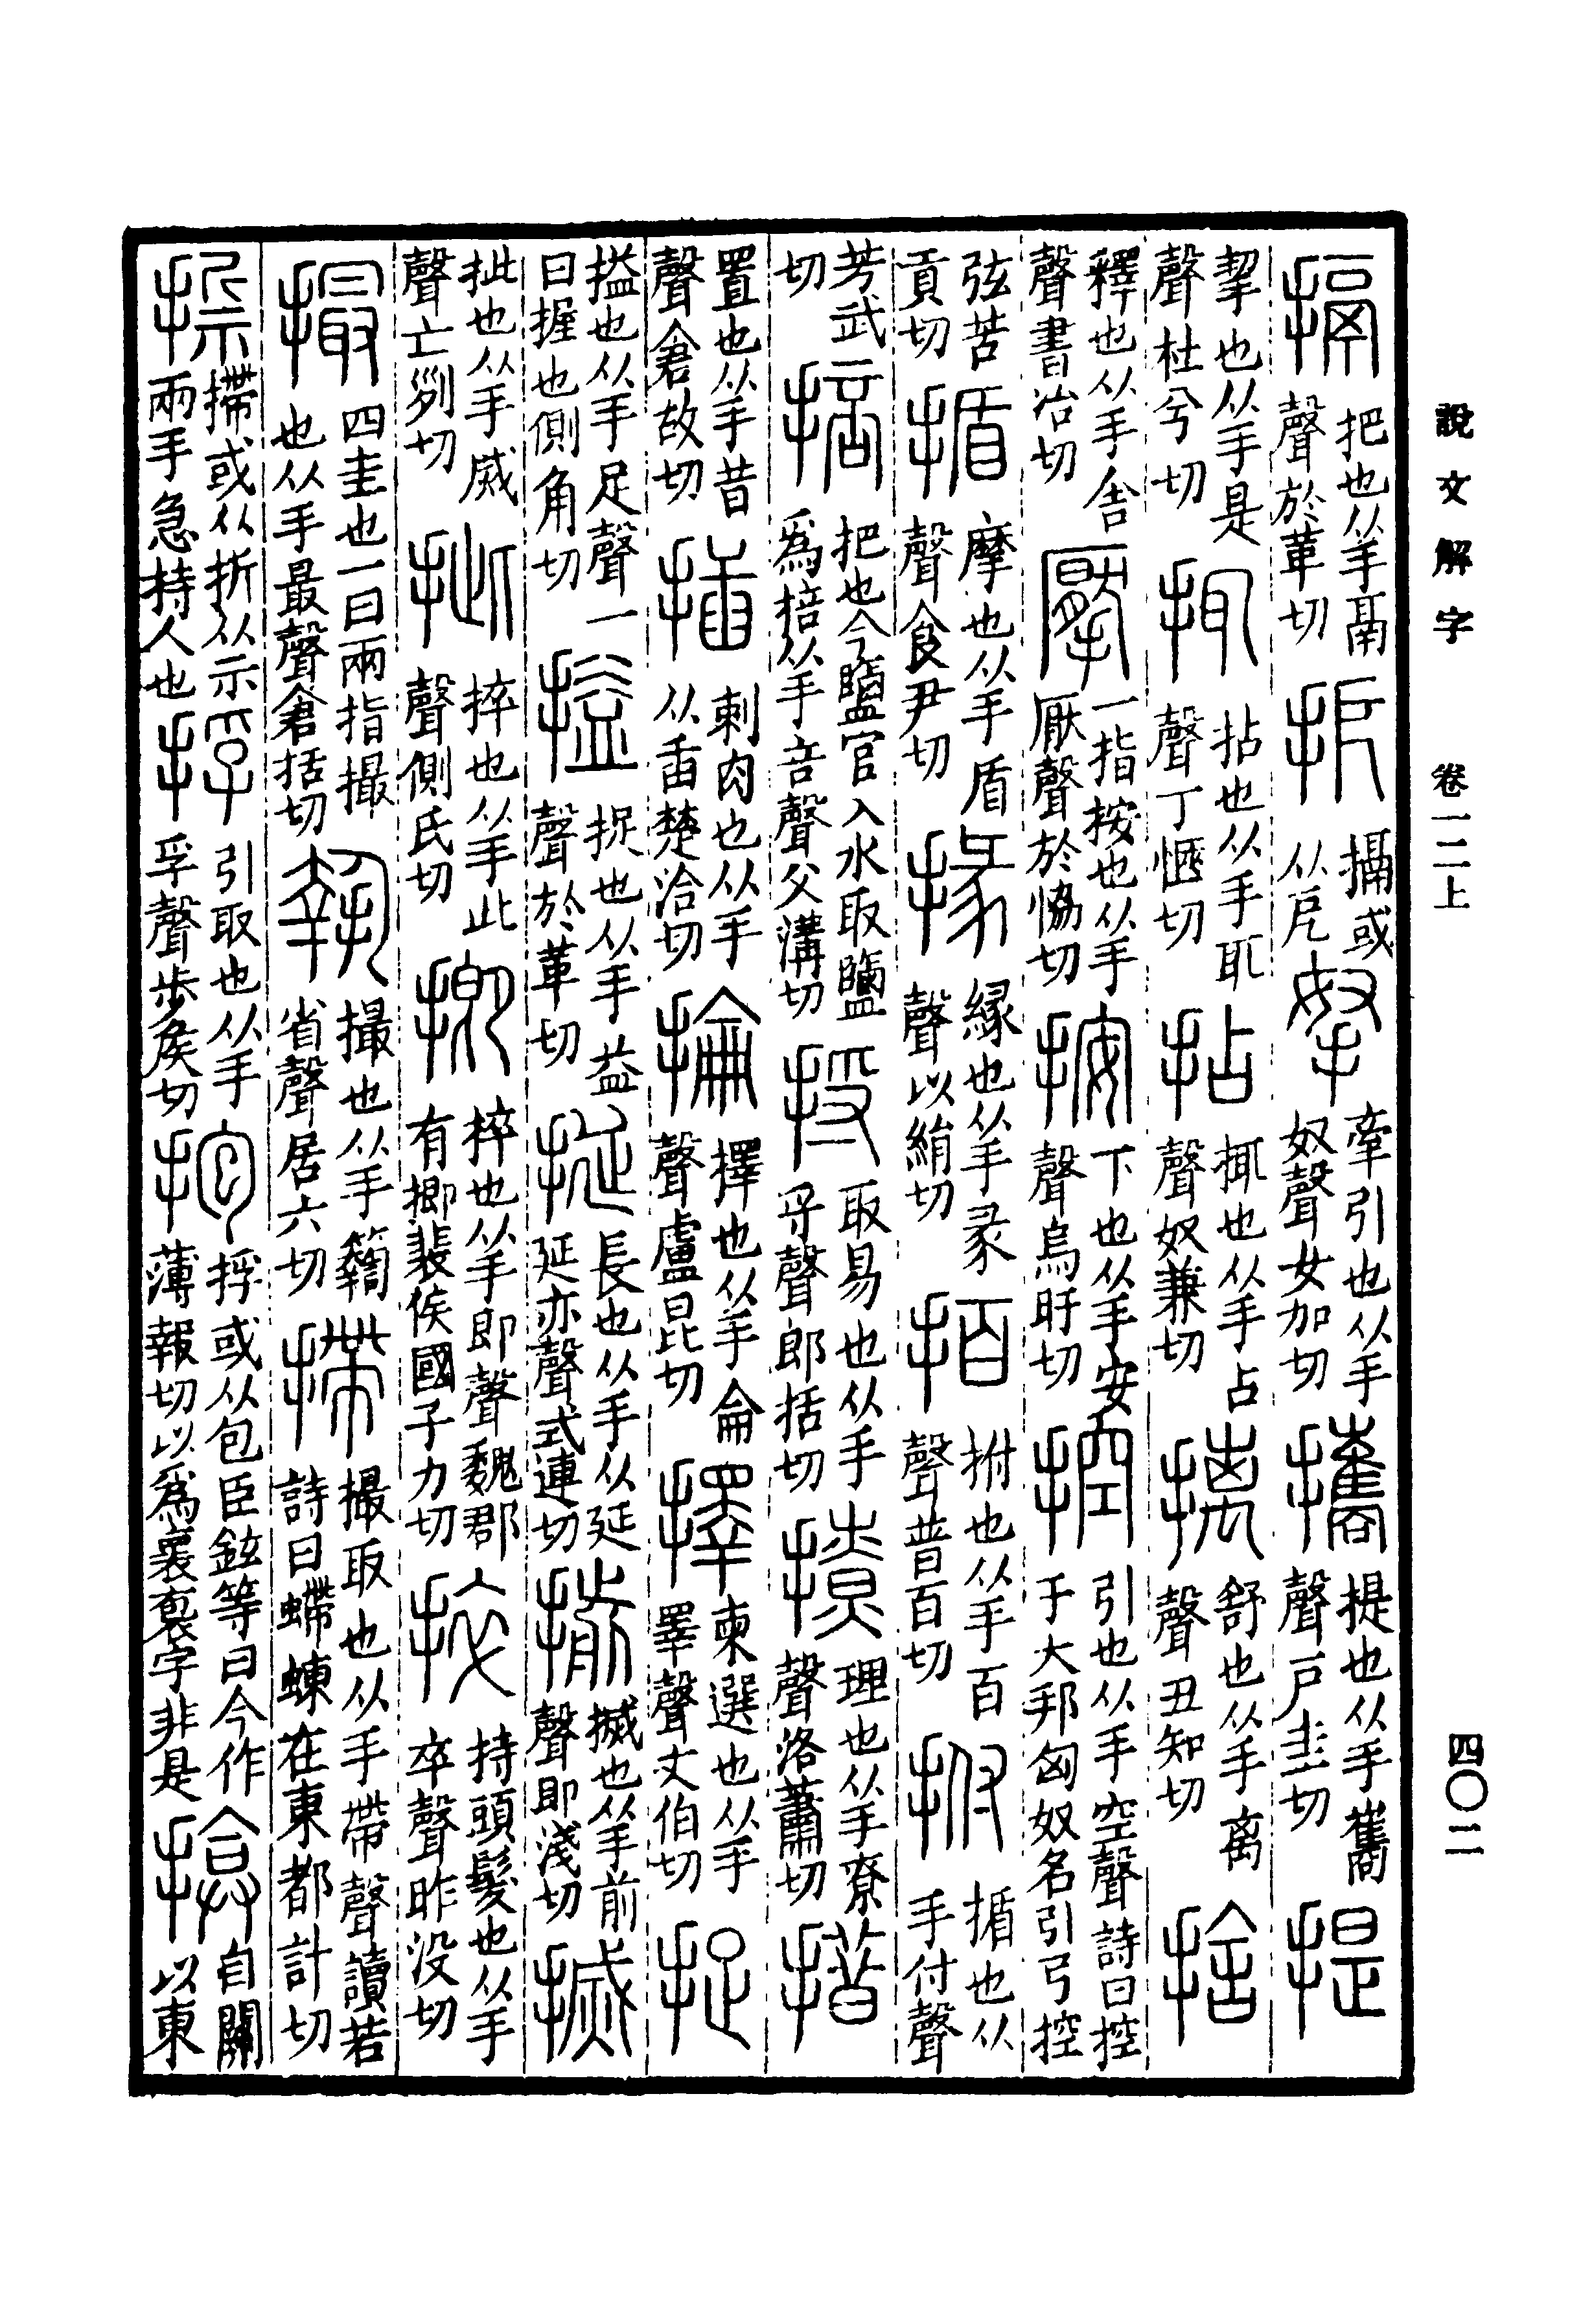 搹把也从手鬲聲於革切扼搹或从戹拏牽引也从手奴聲女加切攜提也从手巂聲戶圭切提
挈也从手是聲杜兮切𢬴拈也从手耴聲丁愜切拈𢬴也从手占聲奴兼切摛舒也从手离聲丑知切捨
釋也从手舍聲書冶切擪一指按也从手厭聲於協切按下也从手安聲烏旰切控引也从手空聲詩曰控于大邦匈奴名引弓控
弦苦貢切揗摩也从手盾聲食尹切掾緣也从手彖聲以絹切拊也从手百聲普百切拊揗也从手付聲
芳武切掊把也今鹽官入水取鹽爲掊从手咅聲父溝切捋取易也从手寽聲郎括切撩理也从手尞聲洛蕭切措
置也从手昔聲倉故切插刺肉也从手从臿楚洽切掄擇也从手侖聲盧昆切擇柬選也从手睪聲丈伯切捉
搤也从手足聲一曰握也側角切搤捉也从手益聲於革切挻長也从手从延延亦聲式連切揃搣也从手前聲即淺切搣
㧗也从手威聲亡列切㧗捽也从手此聲側氏切揤捽也从手即聲魏郡有揤裴侯國子力切捽持頭髮也从手卒聲昨没切
撮四圭也一曰兩指撮也从手最聲倉括切撮也从手𥷚省聲居六切摕撮取也从手帶聲讀若詩曰螮蝀在東都計切
摕或从折从示兩手急持人也捊引取也从手孚聲步矦切抱捊或从包臣鉉等曰今作薄報切以爲褱袌字非是揜自關以東
說文解字 卷一二上 四〇二